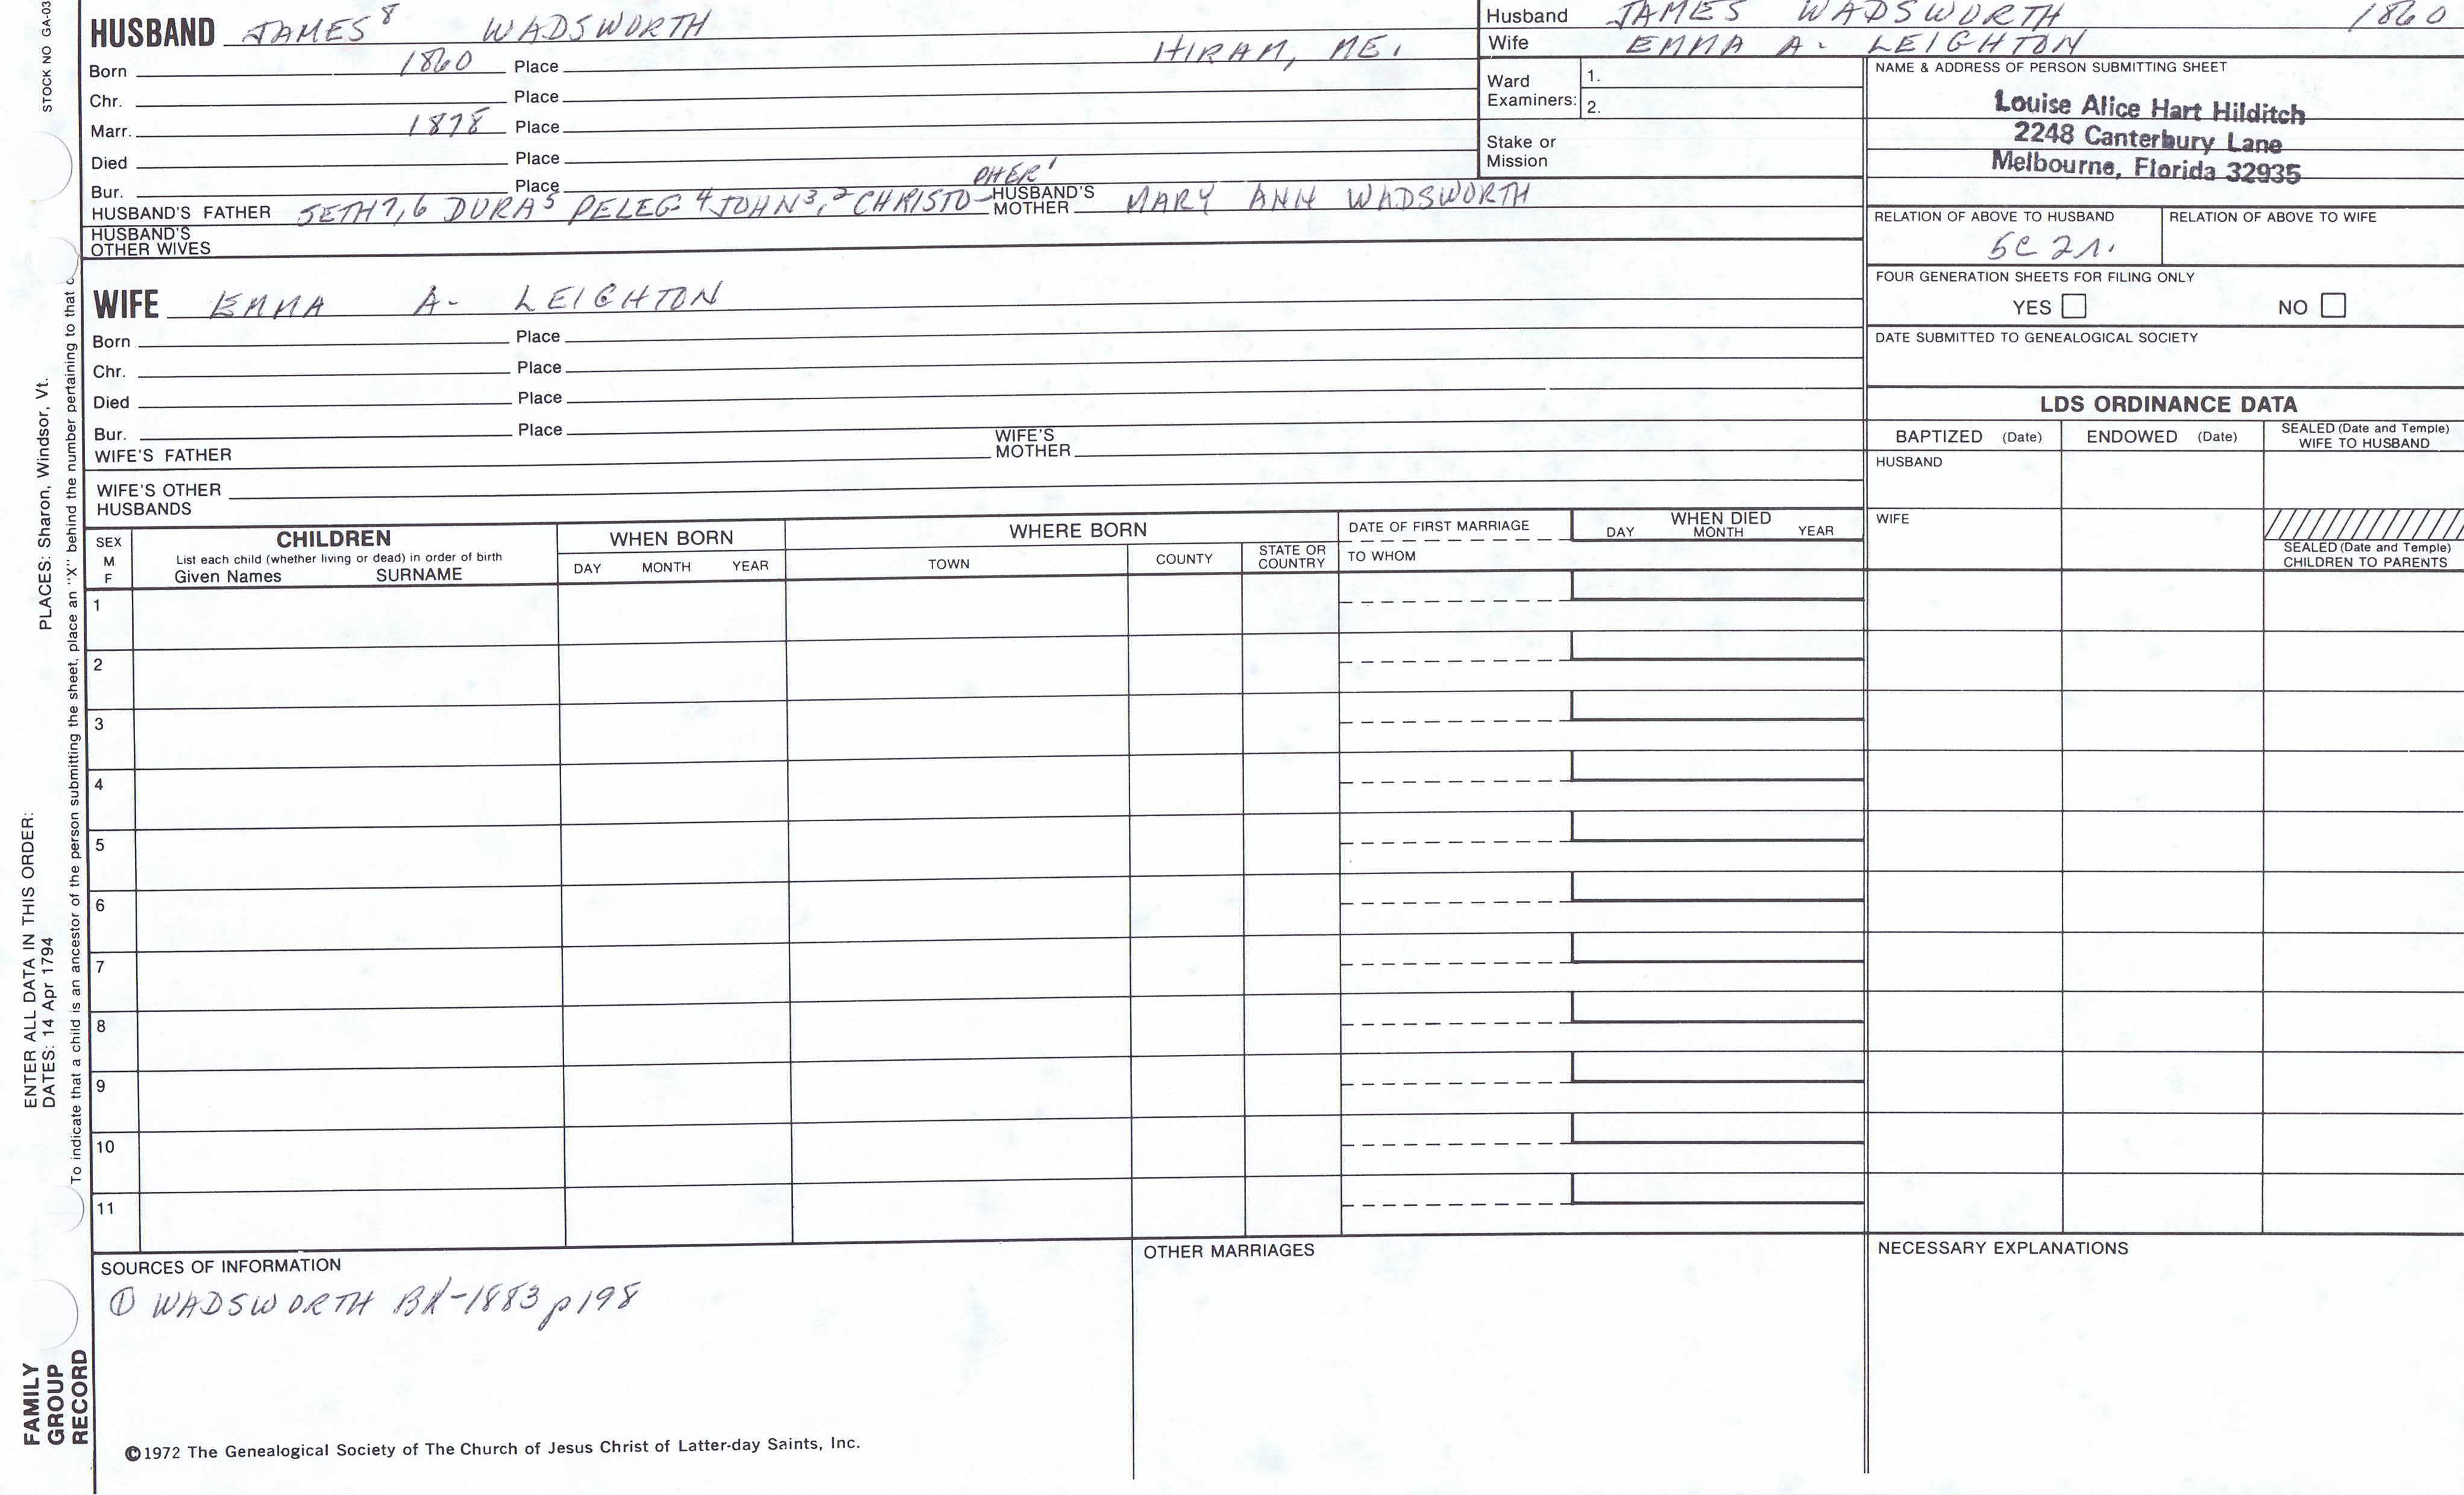 STOCK NO GA-03
HUSBAND JAMES⁸ WADSWORTH
Born 1860 Place HIRAM, ME.
Chr. Place
Marr. 1878 Place
Died Place
Bur. Place
HUSBAND'S FATHER SETH⁷,⁶ DURA⁵ PELEG⁴ JOHN³,² CHRISTO-PHER¹ HUSBAND'S MOTHER MARY ANN WADSWORTH
HUSBAND'S OTHER WIVES
Husband JAMES WADSWORTH 1860
Wife EMMA A. LEIGHTON
Ward Examiners: 1.
2.
Stake or Mission
NAME & ADDRESS OF PERSON SUBMITTING SHEET
Louise Alice Hart Hilditch
2248 Canterbury Lane
Melbourne, Florida 32935
RELATION OF ABOVE TO HUSBAND RELATION OF ABOVE TO WIFE
5C 2r.
FOUR GENERATION SHEETS FOR FILING ONLY
YES NO
DATE SUBMITTED TO GENEALOGICAL SOCIETY
WIFE EMMA A- LEIGHTON
Born Place
Chr. Place
Died Place
Bur. Place
WIFE'S FATHER WIFE'S MOTHER
WIFE'S OTHER HUSBANDS
LDS ORDINANCE DATA
BAPTIZED (Date) ENDOWED (Date) SEALED (Date and Temple) WIFE TO HUSBAND
HUSBAND
WIFE
SEALED (Date and Temple) CHILDREN TO PARENTS
SEX M F
CHILDREN
List each child (whether living or dead) in order of birth
Given Names SURNAME
WHEN BORN
DAY MONTH YEAR
WHERE BORN
TOWN COUNTY STATE OR COUNTRY
DATE OF FIRST MARRIAGE
TO WHOM
WHEN DIED
DAY MONTH YEAR
1
2
3
4
5
6
7
8
9
10
11
SOURCES OF INFORMATION
① WADSWORTH BK-1883 p198
OTHER MARRIAGES
NECESSARY EXPLANATIONS
©1972 The Genealogical Society of The Church of Jesus Christ of Latter-day Saints, Inc.
FAMILY
GROUP
RECORD
ENTER ALL DATA IN THIS ORDER:
DATES: 14 Apr 1794
PLACES: Sharon, Windsor, Vt.
To indicate that a child is an ancestor of the person submitting the sheet, place an "X" behind the number pertaining to that